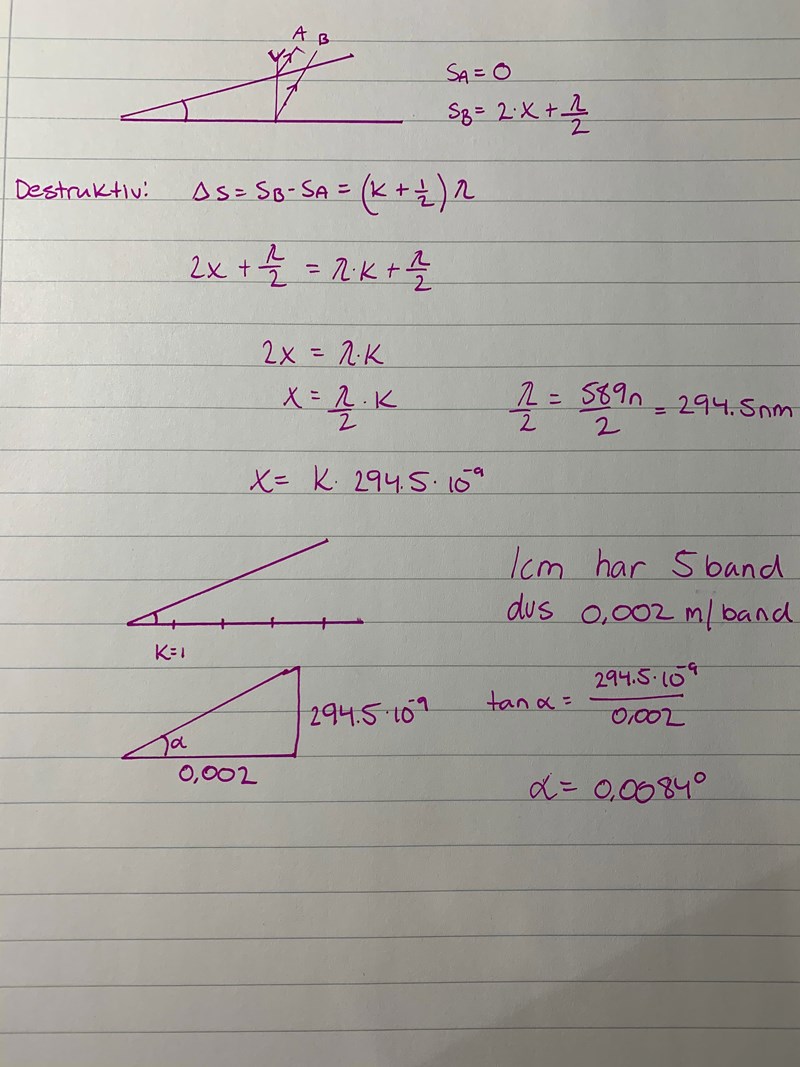 A B
S_A = 0
S_B = 2·x + λ/2
Destruktiv: Δs = S_B - S_A = (k + 1/2) λ
2x + λ/2 = λ·k + λ/2
2x = λ·k
x = λ/2 · k
λ/2 = 589n/2 = 294.5nm
x = k · 294.5 · 10^-9
1cm har 5 band
dvs 0,002 m/band
k=1
294.5·10^-9
α
0,002
tan α = 294.5·10^-9/0,002
α = 0,0084°